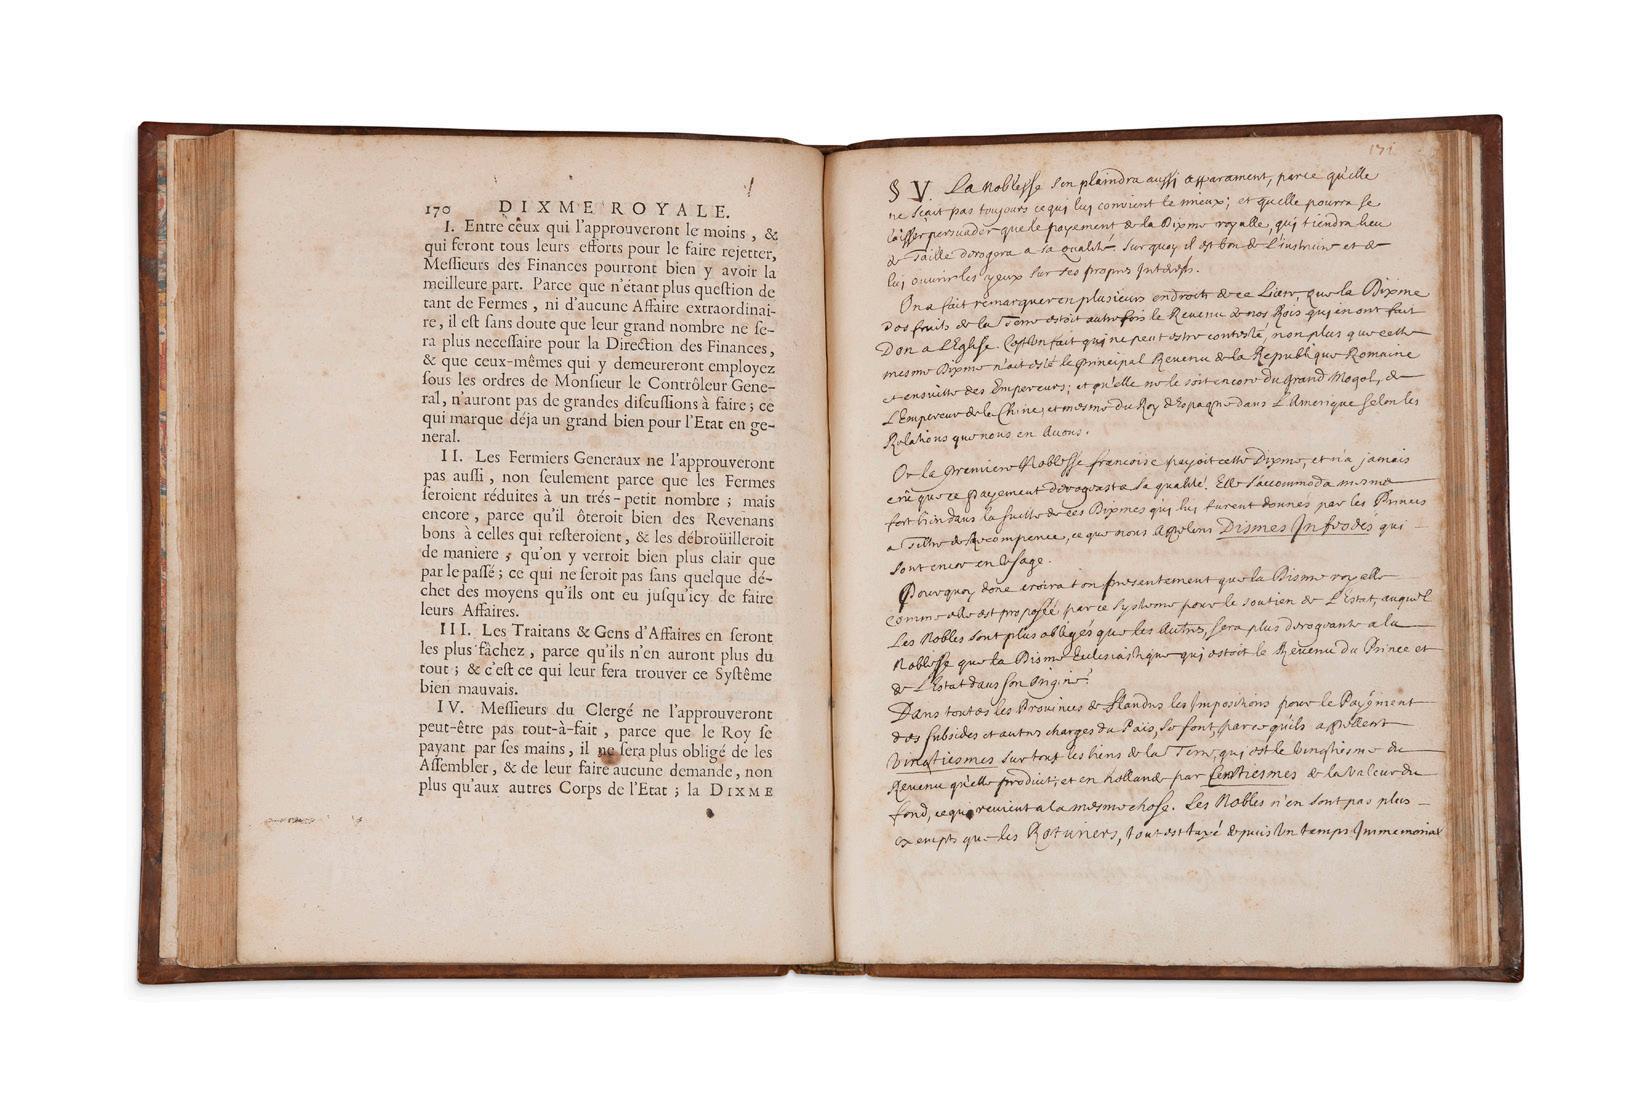 170 DIXME ROYALE.
I. Entre ceux qui l'approuveront le moins, &
qui feront tous leurs efforts pour le faire rejetter,
Messieurs des Finances pourront bien y avoir la
meilleure part. Parce que n'étant plus question de
tant de Fermes, ni d'aucune Affaire extraordinai-
re, il est sans doute que leur grand nombre ne se-
ra plus necessaire pour la Direction des Finances,
& que ceux-mêmes qui y demeureront employez
sous les ordres de Monsieur le Contrôleur Gene-
ral, n'auront pas de grandes discussions à faire; ce
qui marque déja un grand bien pour l'Etat en ge-
neral.
II. Les Fermiers Generaux ne l'approuveront
pas aussi, non seulement parce que les Fermes
seroient réduites à un trés-petit nombre; mais
encore, parce qu'il ôteroit bien des Revenans
bons à celles qui resteroient, & les débroüilleroit
de maniere, qu'on y verroit bien plus clair que
par le passé; ce qui ne seroit pas sans quelque dé-
chet des moyens qu'ils ont eu jusqu'icy de faire
leurs Affaires.
III. Les Traitans & Gens d'Affaires en seront
les plus fâchez, parce qu'ils n'en auront plus du
tout; & c'est ce qui leur fera trouver ce Systême
bien mauvais.
IV. Messieurs du Clergé ne l'approuveront
peut-être pas tout-à-fait, parce que le Roy se
payant par ses mains, il ne sera plus obligé de les
Assembler, & de leur faire aucune demande, non
plus qu'aux autres Corps de l'Etat; la DIXME
171
§ V. La Noblesse s'en plaindra aussi apparament, parce qu'elle
ne scait pas toujours ce qui luy convient le mieux; et quelle pourra se
laisser persuader que le payement de la Dixme royalle, qui tiendra lieu
de Taille derogera a sa qualité. Sur quoy il est bon de L'instruire et de
lui ouvrir les yeux sur ses propres Interets.
On a fait remarquer en plusieurs endroits de ce Livre, que la Dixme
des fruits de la Terre estoit autre fois le Revenu de nos Rois qui en ont fait
Don a L'Eglise. C'est un fait qui ne peut estre contesté, non plus que cette
mesme Dixme n'ait esté le Principal Revenu de la Republique Romaine
et ensuitte des Empereurs; et qu'elle ne le soit encore du grand Mogol, de
L'Empereur de la Chine, et mesme du Roy d'Espagne dans L'Amerique selon les
Relations que nous en avons.
Or la premiere Noblesse francoise payoit cette Dixme, et n'a jamais
crû que ce payement derogeast a sa qualité. Elle s'accommoda mesme
fort bien dans la suitte de ces Dixmes qui lui furent donnés par les Princes
a Tiltre de Recompence, ce que nous appelons Dismes Infeodés qui
sont encor en Usage.
Pourquoy donc croira t'on presentement que la Disme royalle
comme elle est proposée par ce Systeme pour le soutien de L'Estat, auquel
Les Nobles sont plus obligés que les Autres, sera plus derogeante a la
Noblesse que la Disme Eclesiastique qui estoit le Revenu du Prince et
de L'Estat dans son Origine?
Dans toutes les Provinces de Flandres les Impositions pour le Payement
des subsides et autres charges du Païs, se font par ce qu'ils appellent
Vingtiesmes sur tous les biens de la Terre, qui est le Vingtiesme du
Revenu qu'elle produict, et en Hollande par Centiesmes de la Valeur du
fond, ce qui revient a la mesme chose. Les Nobles n'en sont pas plus
exempts que les Roturiers, tout est taxé depuis Un temps Immemorial